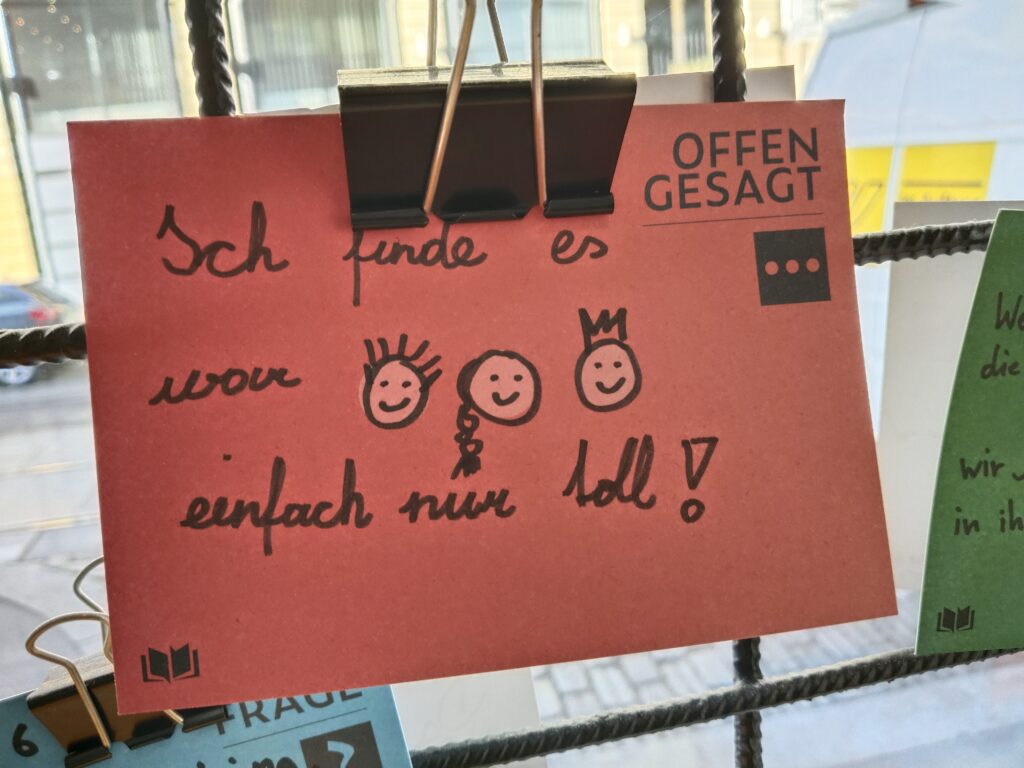 OFFEN
GESAGT
Ich finde es
war
einfach nur toll!
We
die
wir
in ih
6
FRAGE